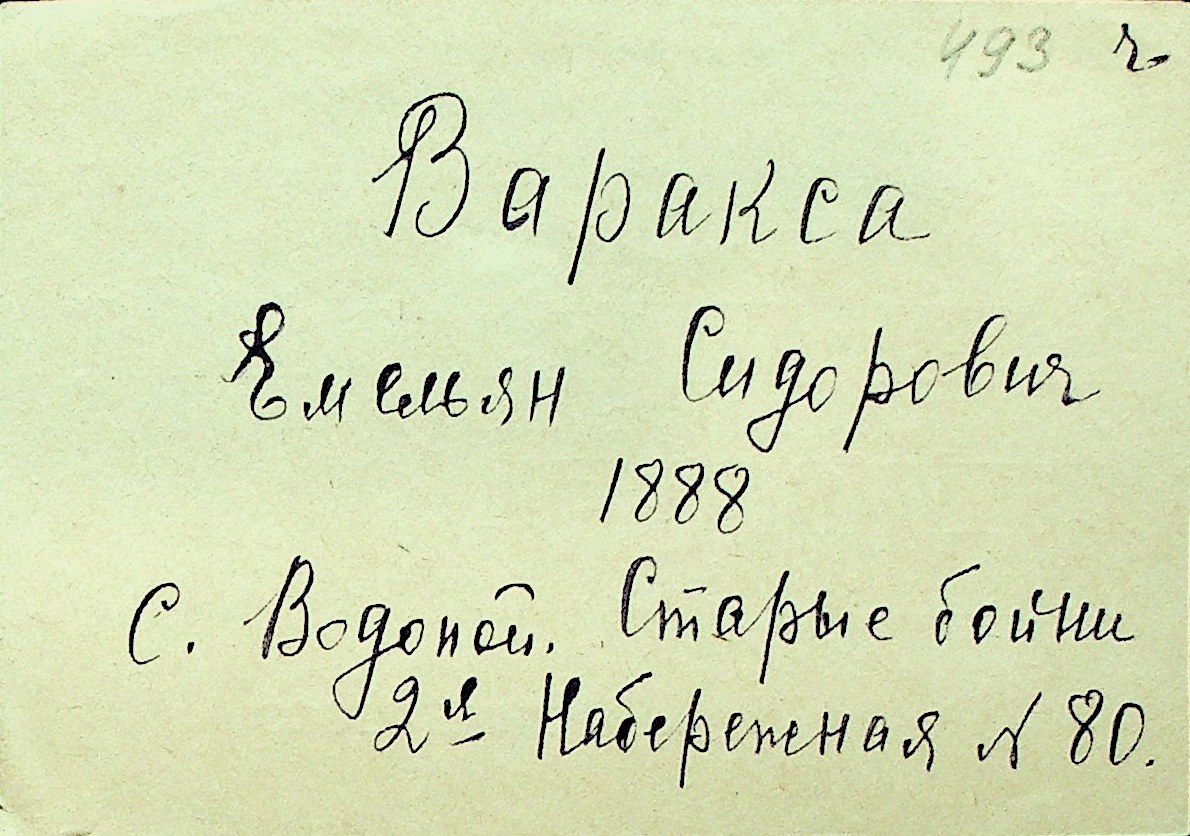 493 ч
Варакса
Емельян Сидорович
1888
С. Водопой. Старые бойни
2я Набережная № 80.